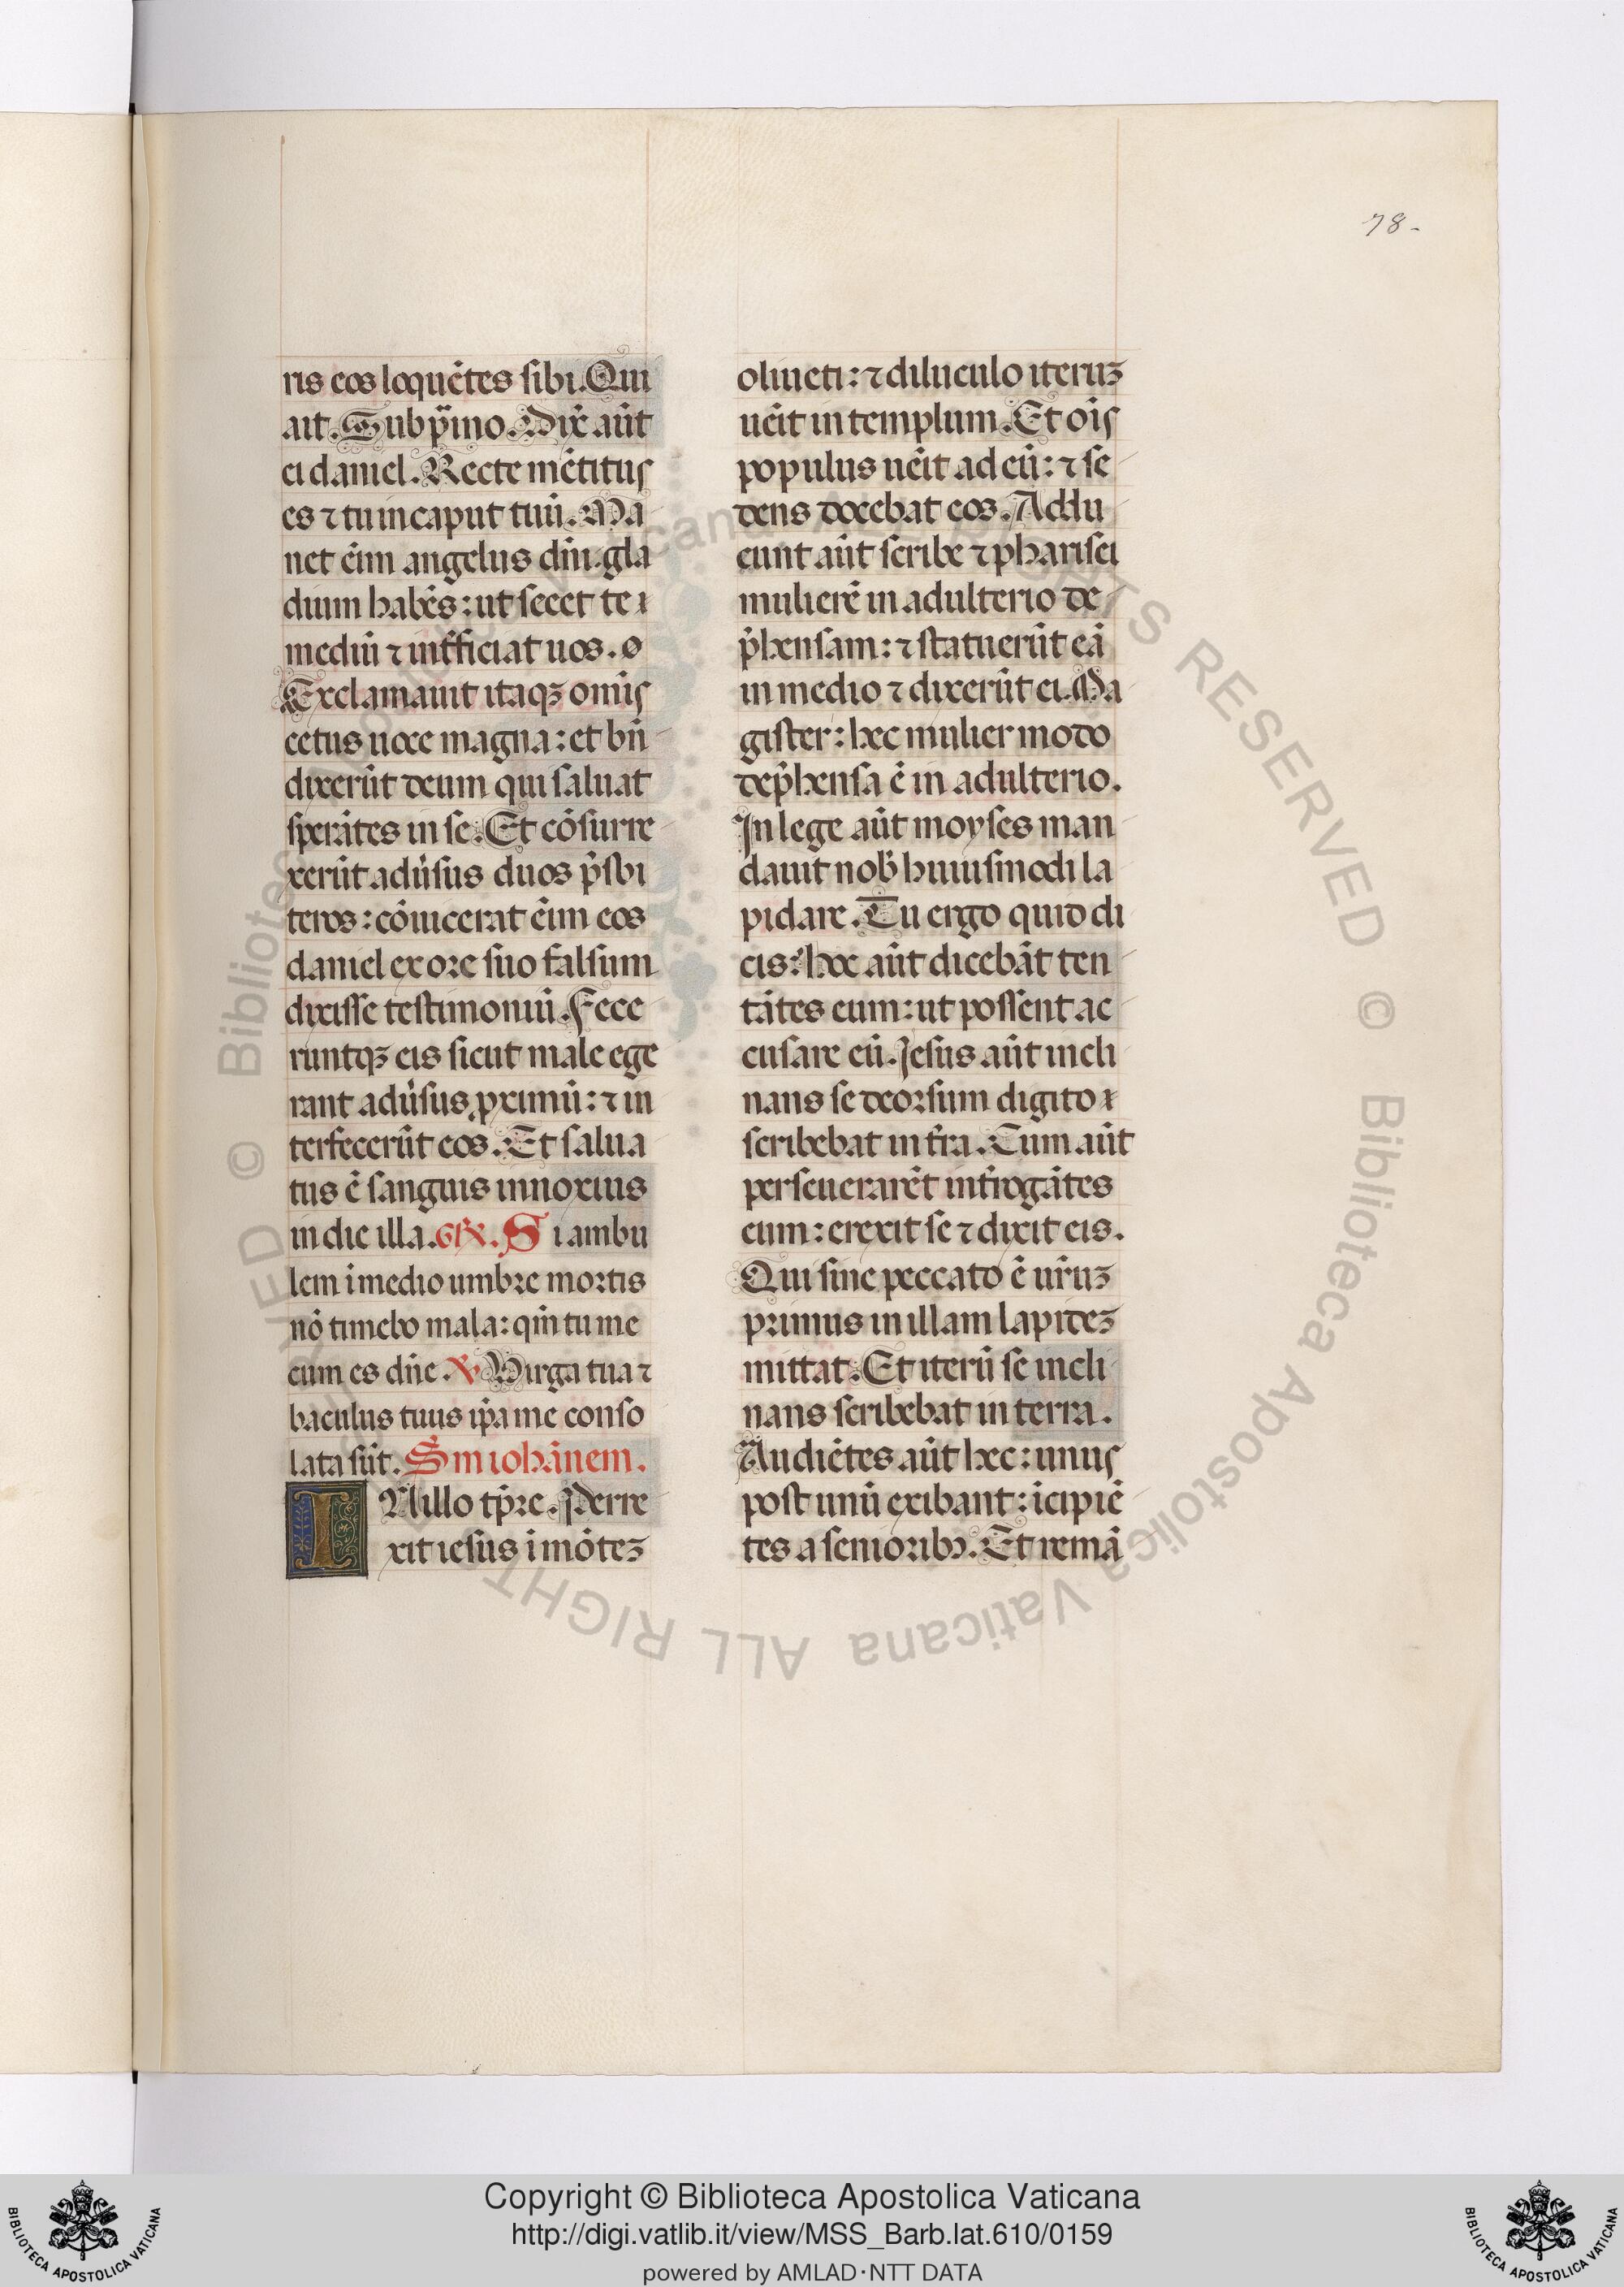 78.
ris eos loquẽtes sibi. Qui
ait. Sub pͥno. Dix̃ aũt
ei daniel. Recte mẽtitus
es ⁊ tu in caput tuũ. Ma
net eĩm angelus dñi. gla
dium habẽs: ut secet te
mediũ ⁊ inƭficiat uos.
Exclamauit itaqꝫ omĩs
cetus uoce magna: et bñ
dixerũt deum qui saluat
sperãtes in se. Et cõsurre
xerũt adũsus duos p̃sbi
teros: cõuicerat eĩm eos
daniel ex ore suo falsum
dixisse testimoniũ. Fece
runtqꝫ eis sicut male ege
rant adũsus ꝓximũ: ⁊ in
terfecerũt eos. Et salua
tus ẽ sanguis innoxius
in die illa. GR̃. Si ambu
lem ĩ medio umbre mortis
nõ timebo mala: qm̃ tu me
cum es dñe. V̷ Virga tua ⁊
baculus tuus ip̃a me conso
lata sũt. Sm̃ iohãnem.
IN illo tp̃re. Perre
xit iesus ĩ mõteꝫ
oliueti: ⁊ diluculo iteruꝫ
uẽit in templum. Et oĩs
populus uẽit ad eũ: ⁊ se
dens docebat eos. Addu
cunt aũt scribe ⁊ pharisei
mulierẽ in adulterio de
p̃hensam: ⁊ statuerũt eã
in medio ⁊ dixerũt ei. Ma
gister: hec mulier modo
dep̃hensa ẽ in adulterio.
In lege aũt moyses man
dauit nob̃ huiusmodi la
pidare. Tu ergo quid di
cis: hoc aũt dicebãt ten
tãtes eum: ut possent ac
cusare eũ. Jesus aũt incli
nans se deorsum digito
scribebat in ƭra. Cum aũt
perseuerarẽt inƭrogãtes
eum: erexit se ⁊ dixit eis.
Qui sine peccato ẽ ur̃uꝫ
primus in illam lapideꝫ
mittat. Et iterũ se incli
nans scribebat in terra.
Audiẽtes aũt hec: unus
post unũ exibant: ĩcipiẽ
tes a senioribꝫ. Et remã
© Biblioteca Apostolica Vaticana ALL RIGHTS RESERVED © Biblioteca Apostolica Vaticana ALL RIGHTS RESERVED
Copyright © Biblioteca Apostolica Vaticana
http://digi.vatlib.it/view/MSS_Barb.lat.610/0159
powered by AMLAD·NTT DATA
BIBLIOTECA APOSTOLICA VATICANA
BIBLIOTECA APOSTOLICA VATICANA